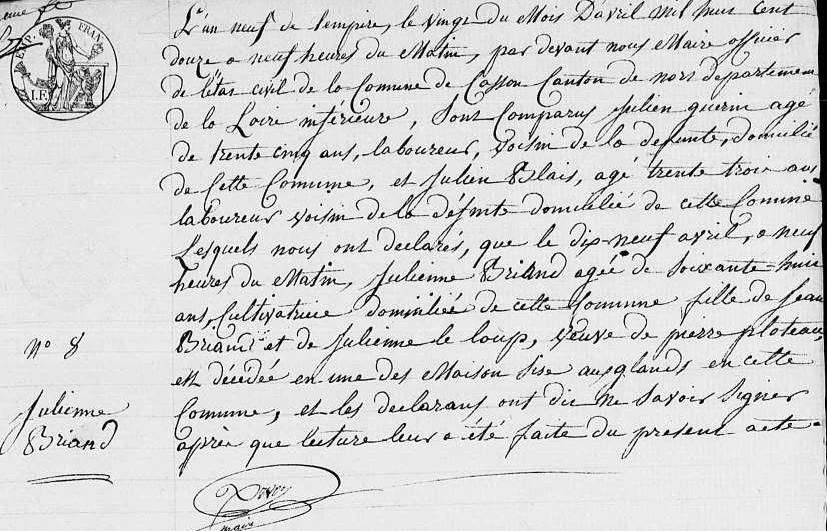 L'an neuf de l'empire, le vingt du Mois D'avril mil huit Cent
douze a neuf heures du Matin, par devant nous Maire officier
de l'état civil de la Commune de Casson Canton de nort departement
de la Loire inférieure, Sont Comparus Julien guerin agé
de trente cinq ans, laboureur, voisin de la defunte, domicilié
de Cette Commune, et Julien Blais, agé trente trois ans
laboureur voisin de la défunte domicilié de cette Commune
Lesquels nous ont declarés, que le dix-neuf avril, a neuf
heures du Matin, Julienne Briand agée de soixante-huit
ans, Cultivatrice domiciliée de cette Commune fille de Jean
Briand et de Julienne le loup, veuve de pierre ploteau,
est décédée en une des Maison Sise aux glands en cette
Commune, et les declarans ont dit ne Savoir Signer
après que lecture leur a été faite du present acte.
N° 8
Julienne
Briand
EMP. FRAN.
maire